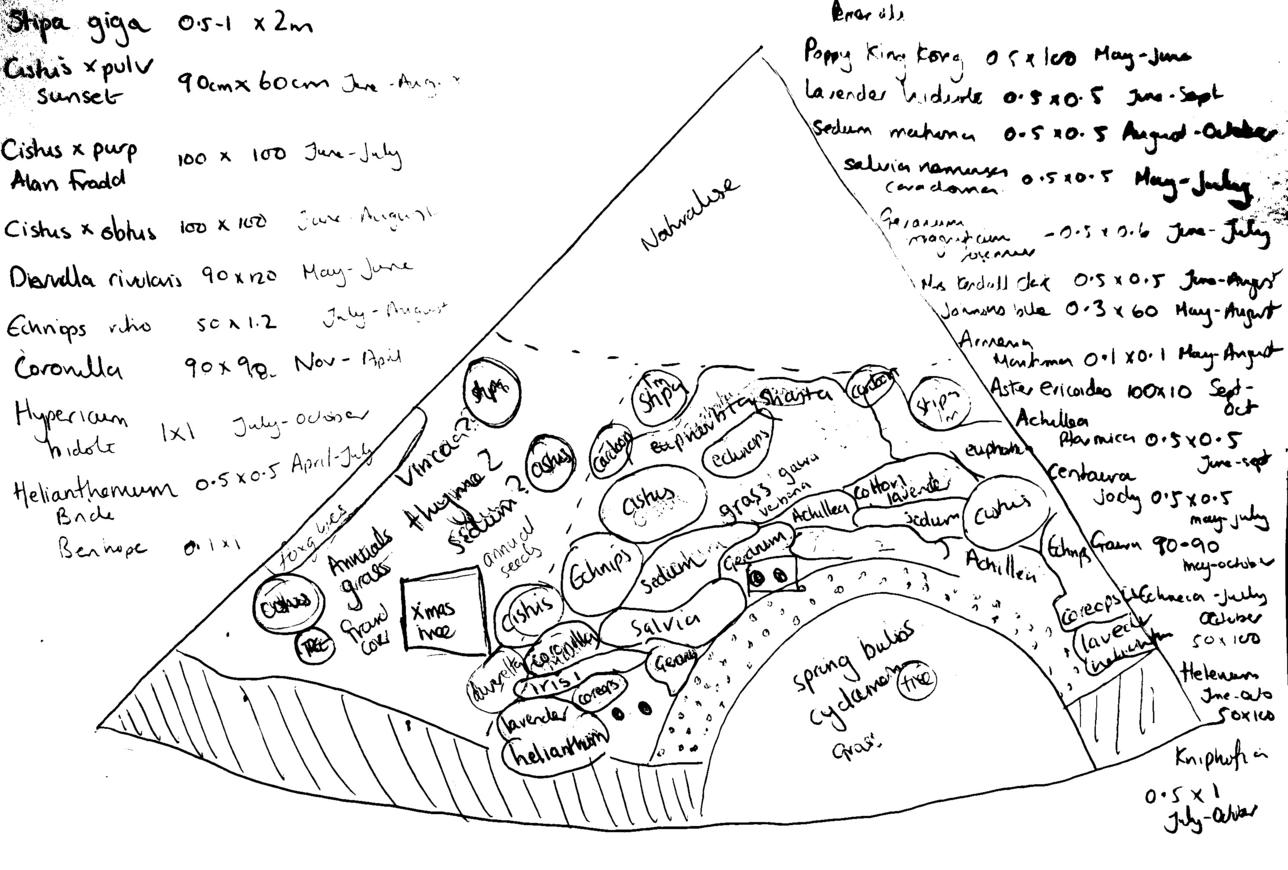 Stipa giga 0.5-1 x 2m
Cistus x pulv
sunset
90cm x 60cm June-Aug
Cistus x purp
Alan Fradd
100 x 100 June-July
Cistus x obtus 100 x 100 June-August
rivularis 90x120 May-June
Echniops 50 x 1.2 July-August
Coronilla 90x90 Nov-April
Hypericum
hidote 1x1 July-October
Helianthemum 0.5x0.5 April-July
Bride
0.1x1
Poppy King Kong 0.5x100 May-June
Lavender 0.5x0.5 June-Sept
Sedum matrona 0.5x0.5 August-October
salvia nemorosa
caradonna 0.5x0.5 May-July
Geranium
magnificum -0.5x0.6 June-July
Mrs Kendall Clark 0.5x0.5 June-August
Johnsons blue 0.3x60 May-August
Armeria
Maritima 0.1x0.1 May-August
Aster ericoides 100x10 Sept-
Oct
Achillea
Ptarmica 0.5x0.5
June-sept
Centaura
jody 0.5x0.5
may-july
Gaura 90-90
may-october
Echnecia -July
October
50x100
Helenium
50x100
Kniphofia
0.5 x 1
July-October
Naturalise
Stipa
1m
Stipa
cardoon
Stipa
1m
Shasta
euphorbia
Vinica??
thyme?
sedum?
cistus
cardoon
echnops
euphorbia
cistus
grass gaura
verbena
Achillea
cotton
lavender
sedum
cistus
foxgloves
Annuals
grass
annual
seeds
Echnips
Sedum
Geranum
2
Achillea
Echnips
cistus
TREE
Xmas
tree
cistus
Salvia
coronilla
Geranu
coreops
lavender
irisi
coreops
lavender
helianthum
spring bulbs
cyclamen
tree
Grass